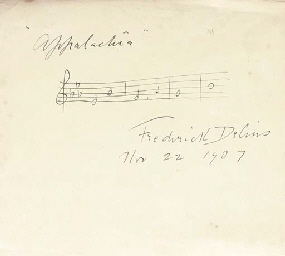 "Appalachia"
Frederick Delius
Nov 22 1907